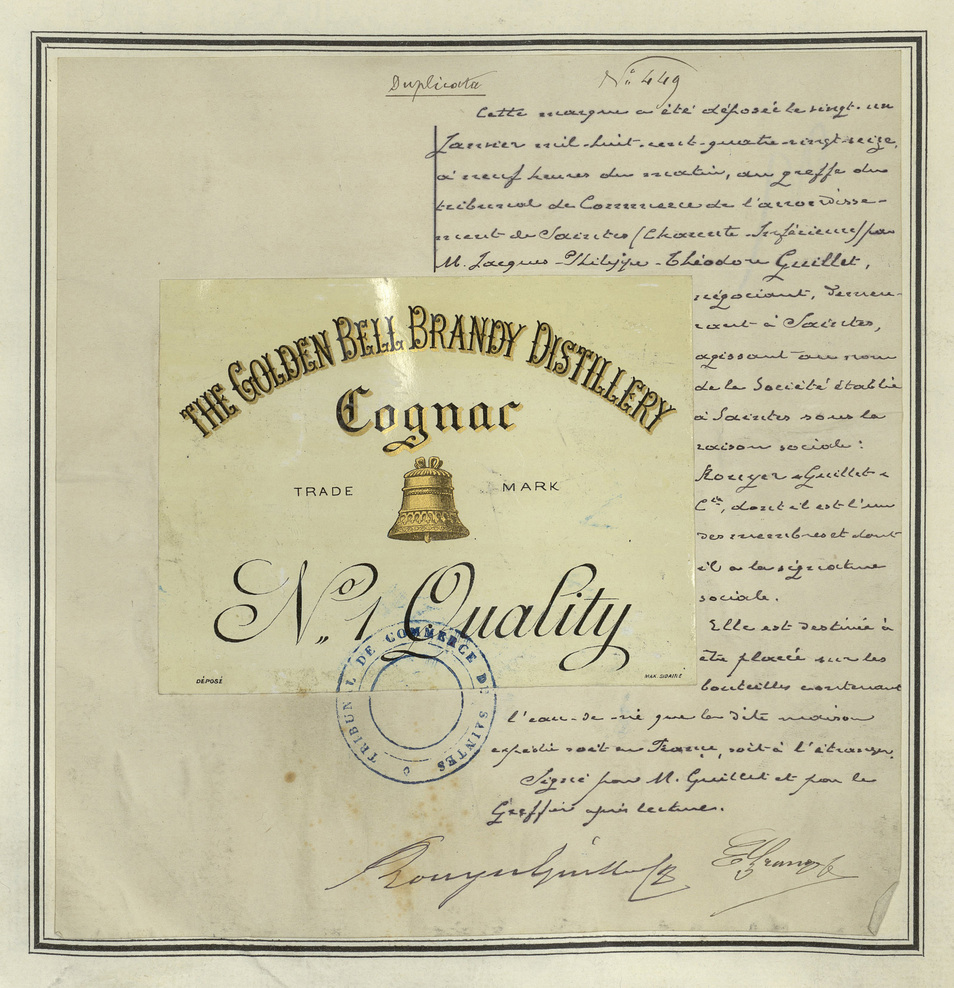 Duplicata
N° 449
Cette marque a été déposée le vingt-un
Janvier mil-huit-cent-quatre-vingt-seize,
à neuf heures du matin, au greffe du
tribunal de Commerce de l'arrondisse-
ment de Saintes (Charente-Inférieure) par
M. Jacques-Philippe-Théodore Guillet,
négociant, demeu-
rant à Saintes,
agissant au nom
de la Société établie
à Saintes sous la
raison sociale :
Rouyer, Guillet &
Cie, dont il est l'un
des membres et dont
il a la signature
sociale.
Elle est destinée à
être placée sur les
bouteilles contenant
l'eau-de-vie que la dite maison
expédie soit en France, soit à l'étranger.
Signé par M. Guillet et par le
Greffier après lecture.
THE GOLDEN BELL BRANDY DISTILLERY
Cognac
TRADE MARK
No. 1 Quality
DÉPOSÉ
TRIBUNAL DE COMMERCE DE SAINTES
Rouyer Guillet & Cie